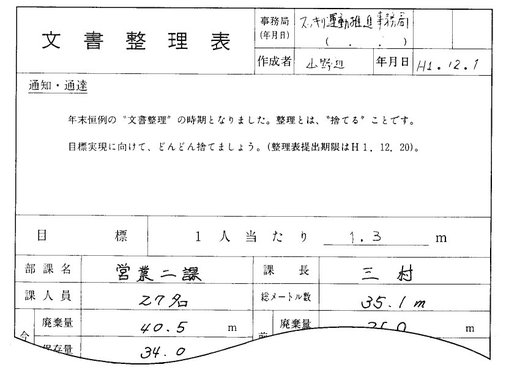 文書整理表
事務局 スッキリ運動推進事務局
(年月日) ( . . )
作成者 山野辺 年月日 H1.12.1
通知・通達
年末恒例の"文書整理"の時期となりました。整理とは、"捨てる"ことです。
目標実現に向けて、どんどん捨てましょう。(整理表提出期限はH1.12.20)。
目標 1人当たり 1.3 m
部課名 営業二課 課長 三村
課人員 27名 総メートル数 35.1m
廃棄量 40.5 m 廃棄量
保存量 34.0